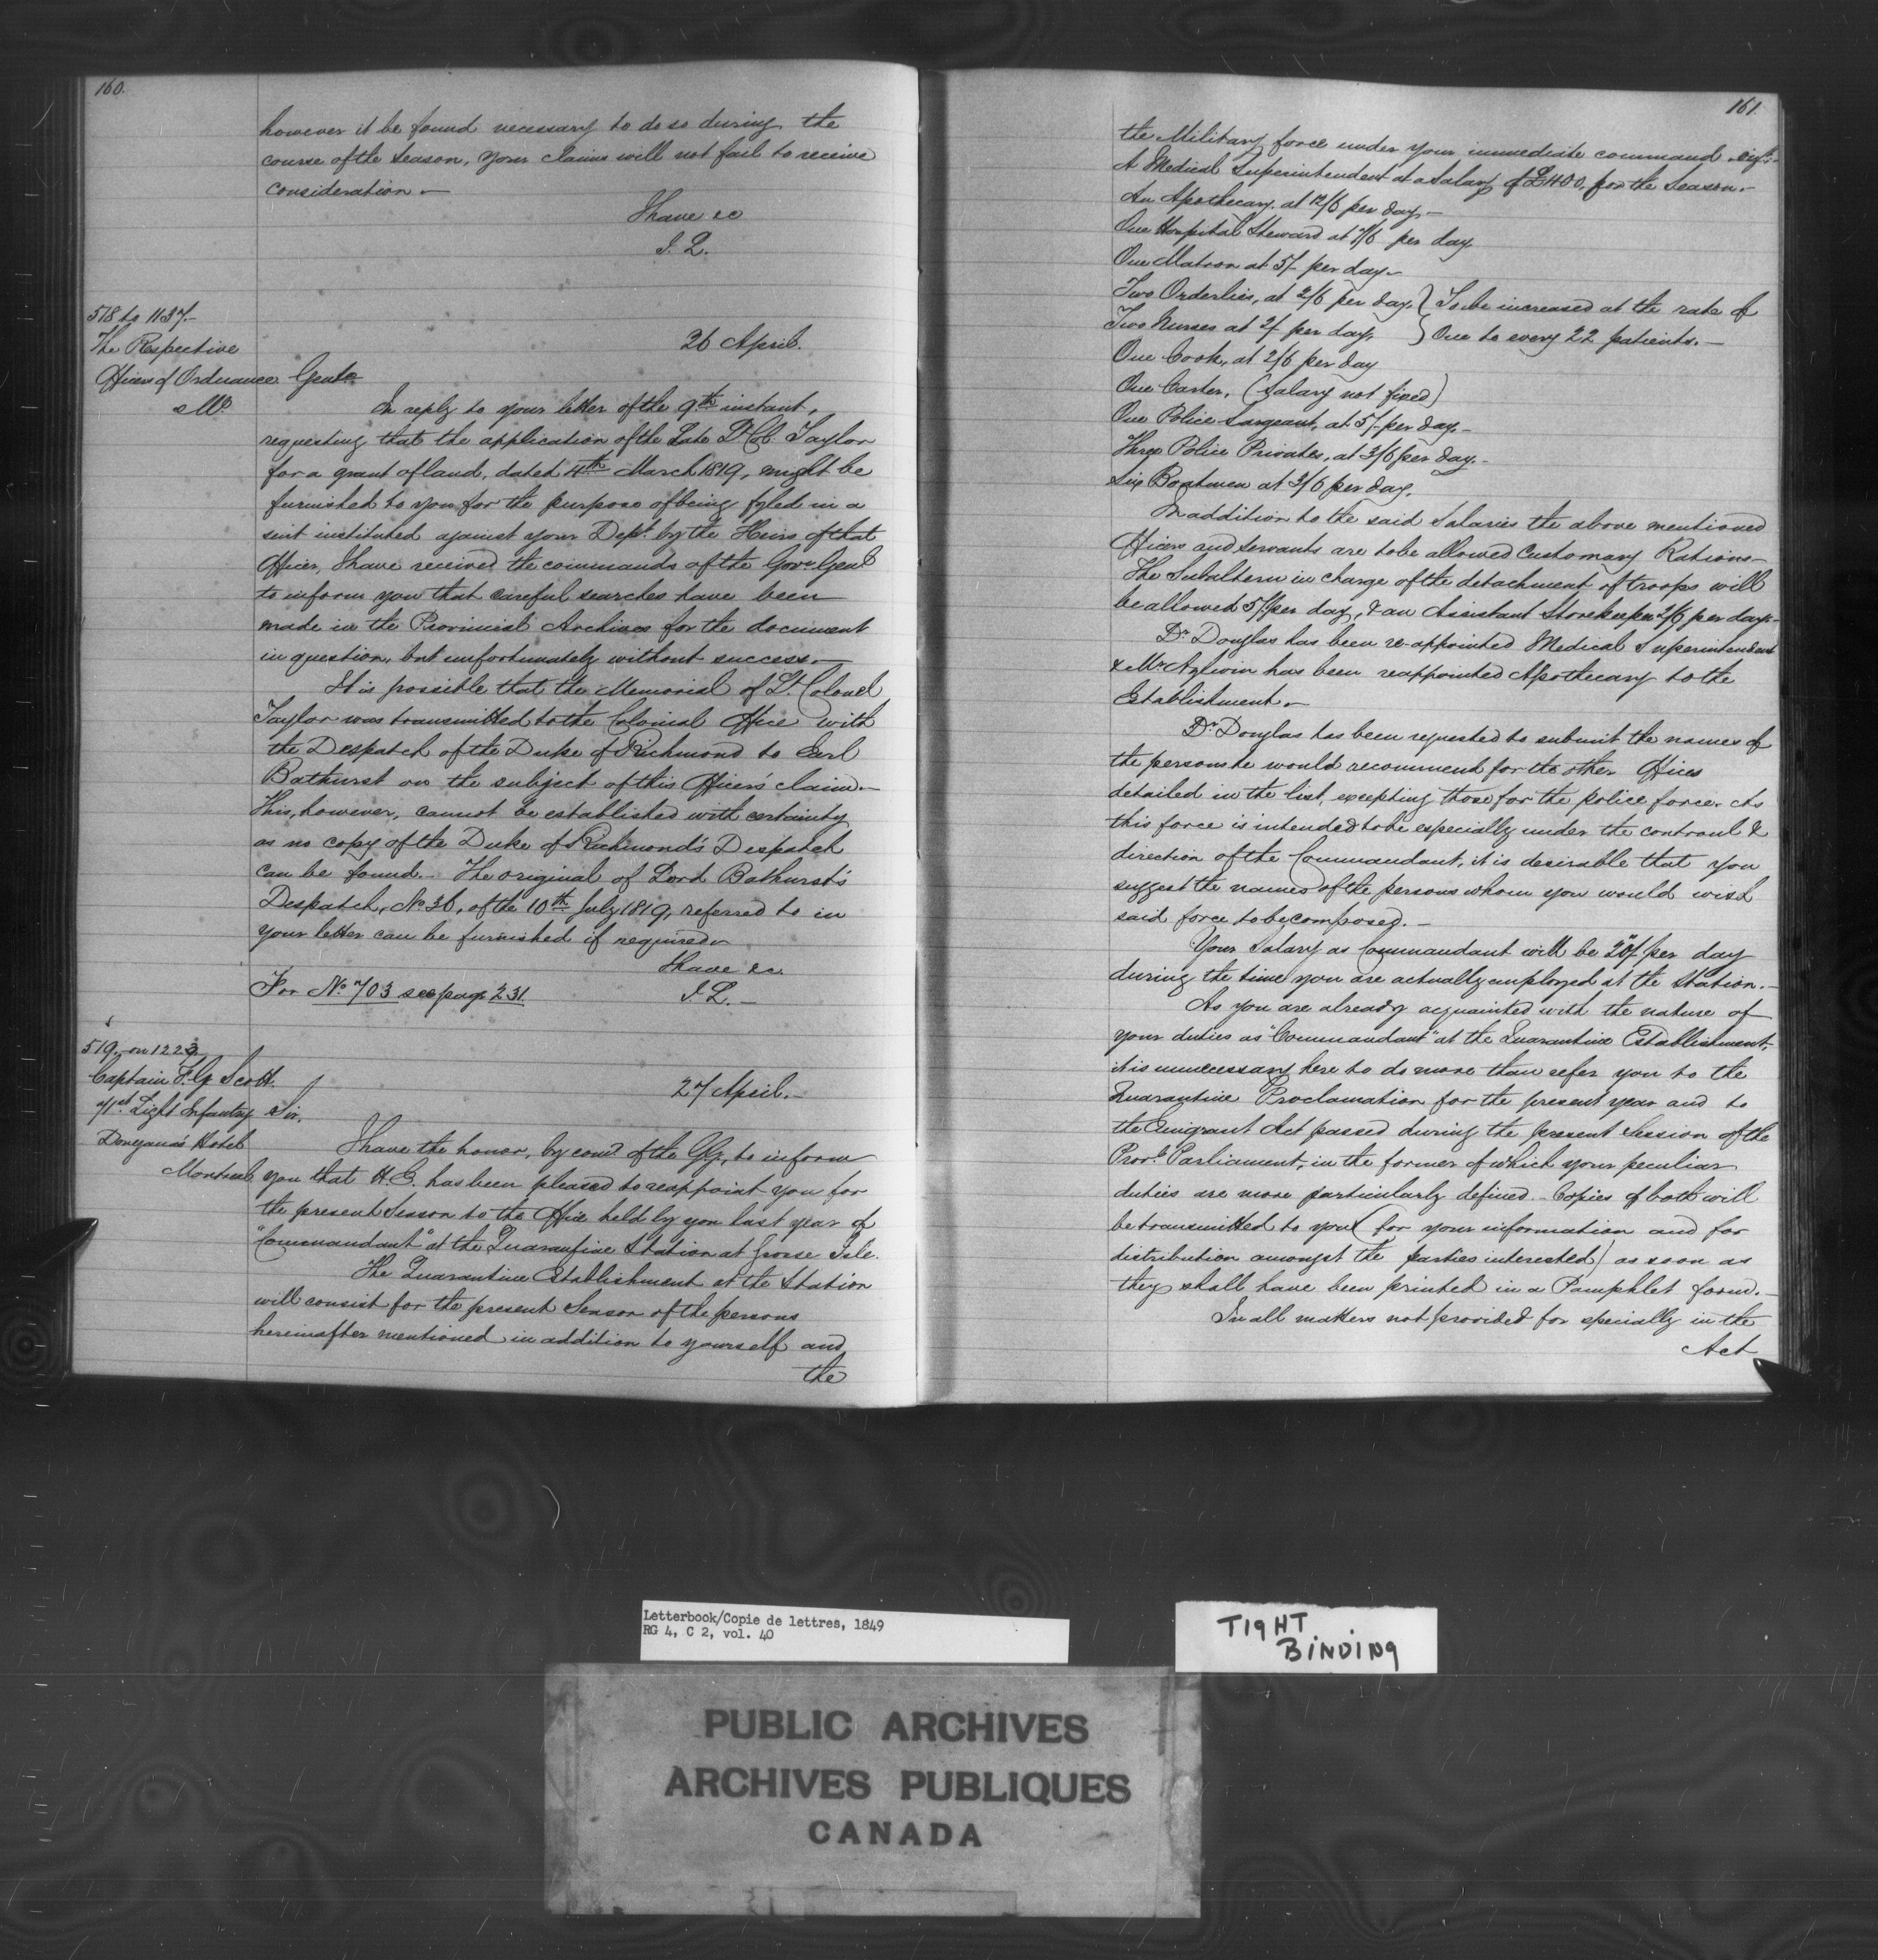 160.
however it be found necessary to do so during the
course of the Season, your claims will not fail to receive
consideration.—
I have &c
J. L.
518 to 1137.—
The Respective
Officers of Ordnance
26 April.
Gentn
In reply to your letter of the 9th instant,
requesting that the application of the Late Lt Col. Taylor
for a grant of land, dated 4th March 1819, might be
furnished to you for the purpose of being fyled in a
suit instituted against your Dept. by the Heirs of that
Officer, I have received the commands of the Govr Genl
to inform you that careful searches have been
made in the Provincial Archives for the document
in question, but unfortunately without success.—
It is possible that the Memorial of Lt. Colonel
Taylor was transmitted to the Colonial Office with
the Despatch of the Duke of Richmond to Earl
Bathurst on the subject of this Officer's claim.—
This, however, cannot be established with certainty
as no copy of the Duke of Richmond's Despatch
can be found.— The original of Lord Bathurst's
Despatch, No 36, of the 10th July 1819, referred to in
your letter can be furnished if required.
I have &c.
J. L.—
For No 703 see page 231.
519. on 1223
Captain F. G. Scott.
71st Light Infantry
Donegana's Hotel
Montreal
27 April.—
Sir,
I have the honor, by comd of the G.G., to inform
you that H. E. has been pleased to reappoint you for
the present Season to the Office held by you last year of
"Commandant" at the Quarantine Station at Grosse Isle.
The Quarantine Establishment at the Station
will consist for the present Season of the persons
hereinafter mentioned in addition to yourself and
the
161.
the Military force under your immediate command.
A Medical Superintendent at a Salary of £400, for the Season.—
An Apothecary. at 12/6 per day,—
One Hospital Steward at 7/6 per day
One Matron at 5/- per day.—
Two Orderlies, at 2/6 per day. } To be increased at the rate of
Two Nurses at 2/ per day, } One to every 22 patients.—
One Cook, at 2/6 per day
One Carter, (Salary not fixed)
One Police Sargeant, at 5/- per day.—
Three Police Privates, at 3/6 per day.—
Six Boatmen at 3/6 per day.
In addition to the said Salaries the above mentioned
Officers and Servants are to be allowed Customary Rations—
The Subaltern in charge of the detachment of troops will
be allowed 5/- per day, & an Assistant Storekeeper 2/6 per day.—
Dr Douglas has been re-appointed Medical Superintendent
& Mr has been reappointed Apothecary to the
Establishment.—
Dr Douglas has been requested to submit the names of
the persons he would recommend for the other Offices
detailed in the list, excepting those for the police force. As
this force is intended to be especially under the controul &
direction of the Commandant, it is desirable that you
suggest the names of the persons whom you would wish
said force to be composed.—
Your Salary as Commandant will be 20/ per day
during the time you are actually employed at the Station.—
As you are already acquainted with the nature of
your duties as "Commandant" at the Quarantine Establishment,
it is unnecessary here to do more than refer you to the
Quarantine Proclamation for the present year and to
the Emigrant Act passed during the present Session of the
Provl Parliament, in the former of which your peculiar
duties are more particularly defined.— Copies of both will
be transmitted to you (for your information and for
distribution amongst the parties interested) as soon as
they shall have been printed in a Pamphlet form.—
In all matters not provided for specially in the
Act
Letterbook/Copie de lettres, 1849
RG 4, C 2, vol. 40
TIGHT
BINDING
PUBLIC ARCHIVES
ARCHIVES PUBLIQUES
CANADA